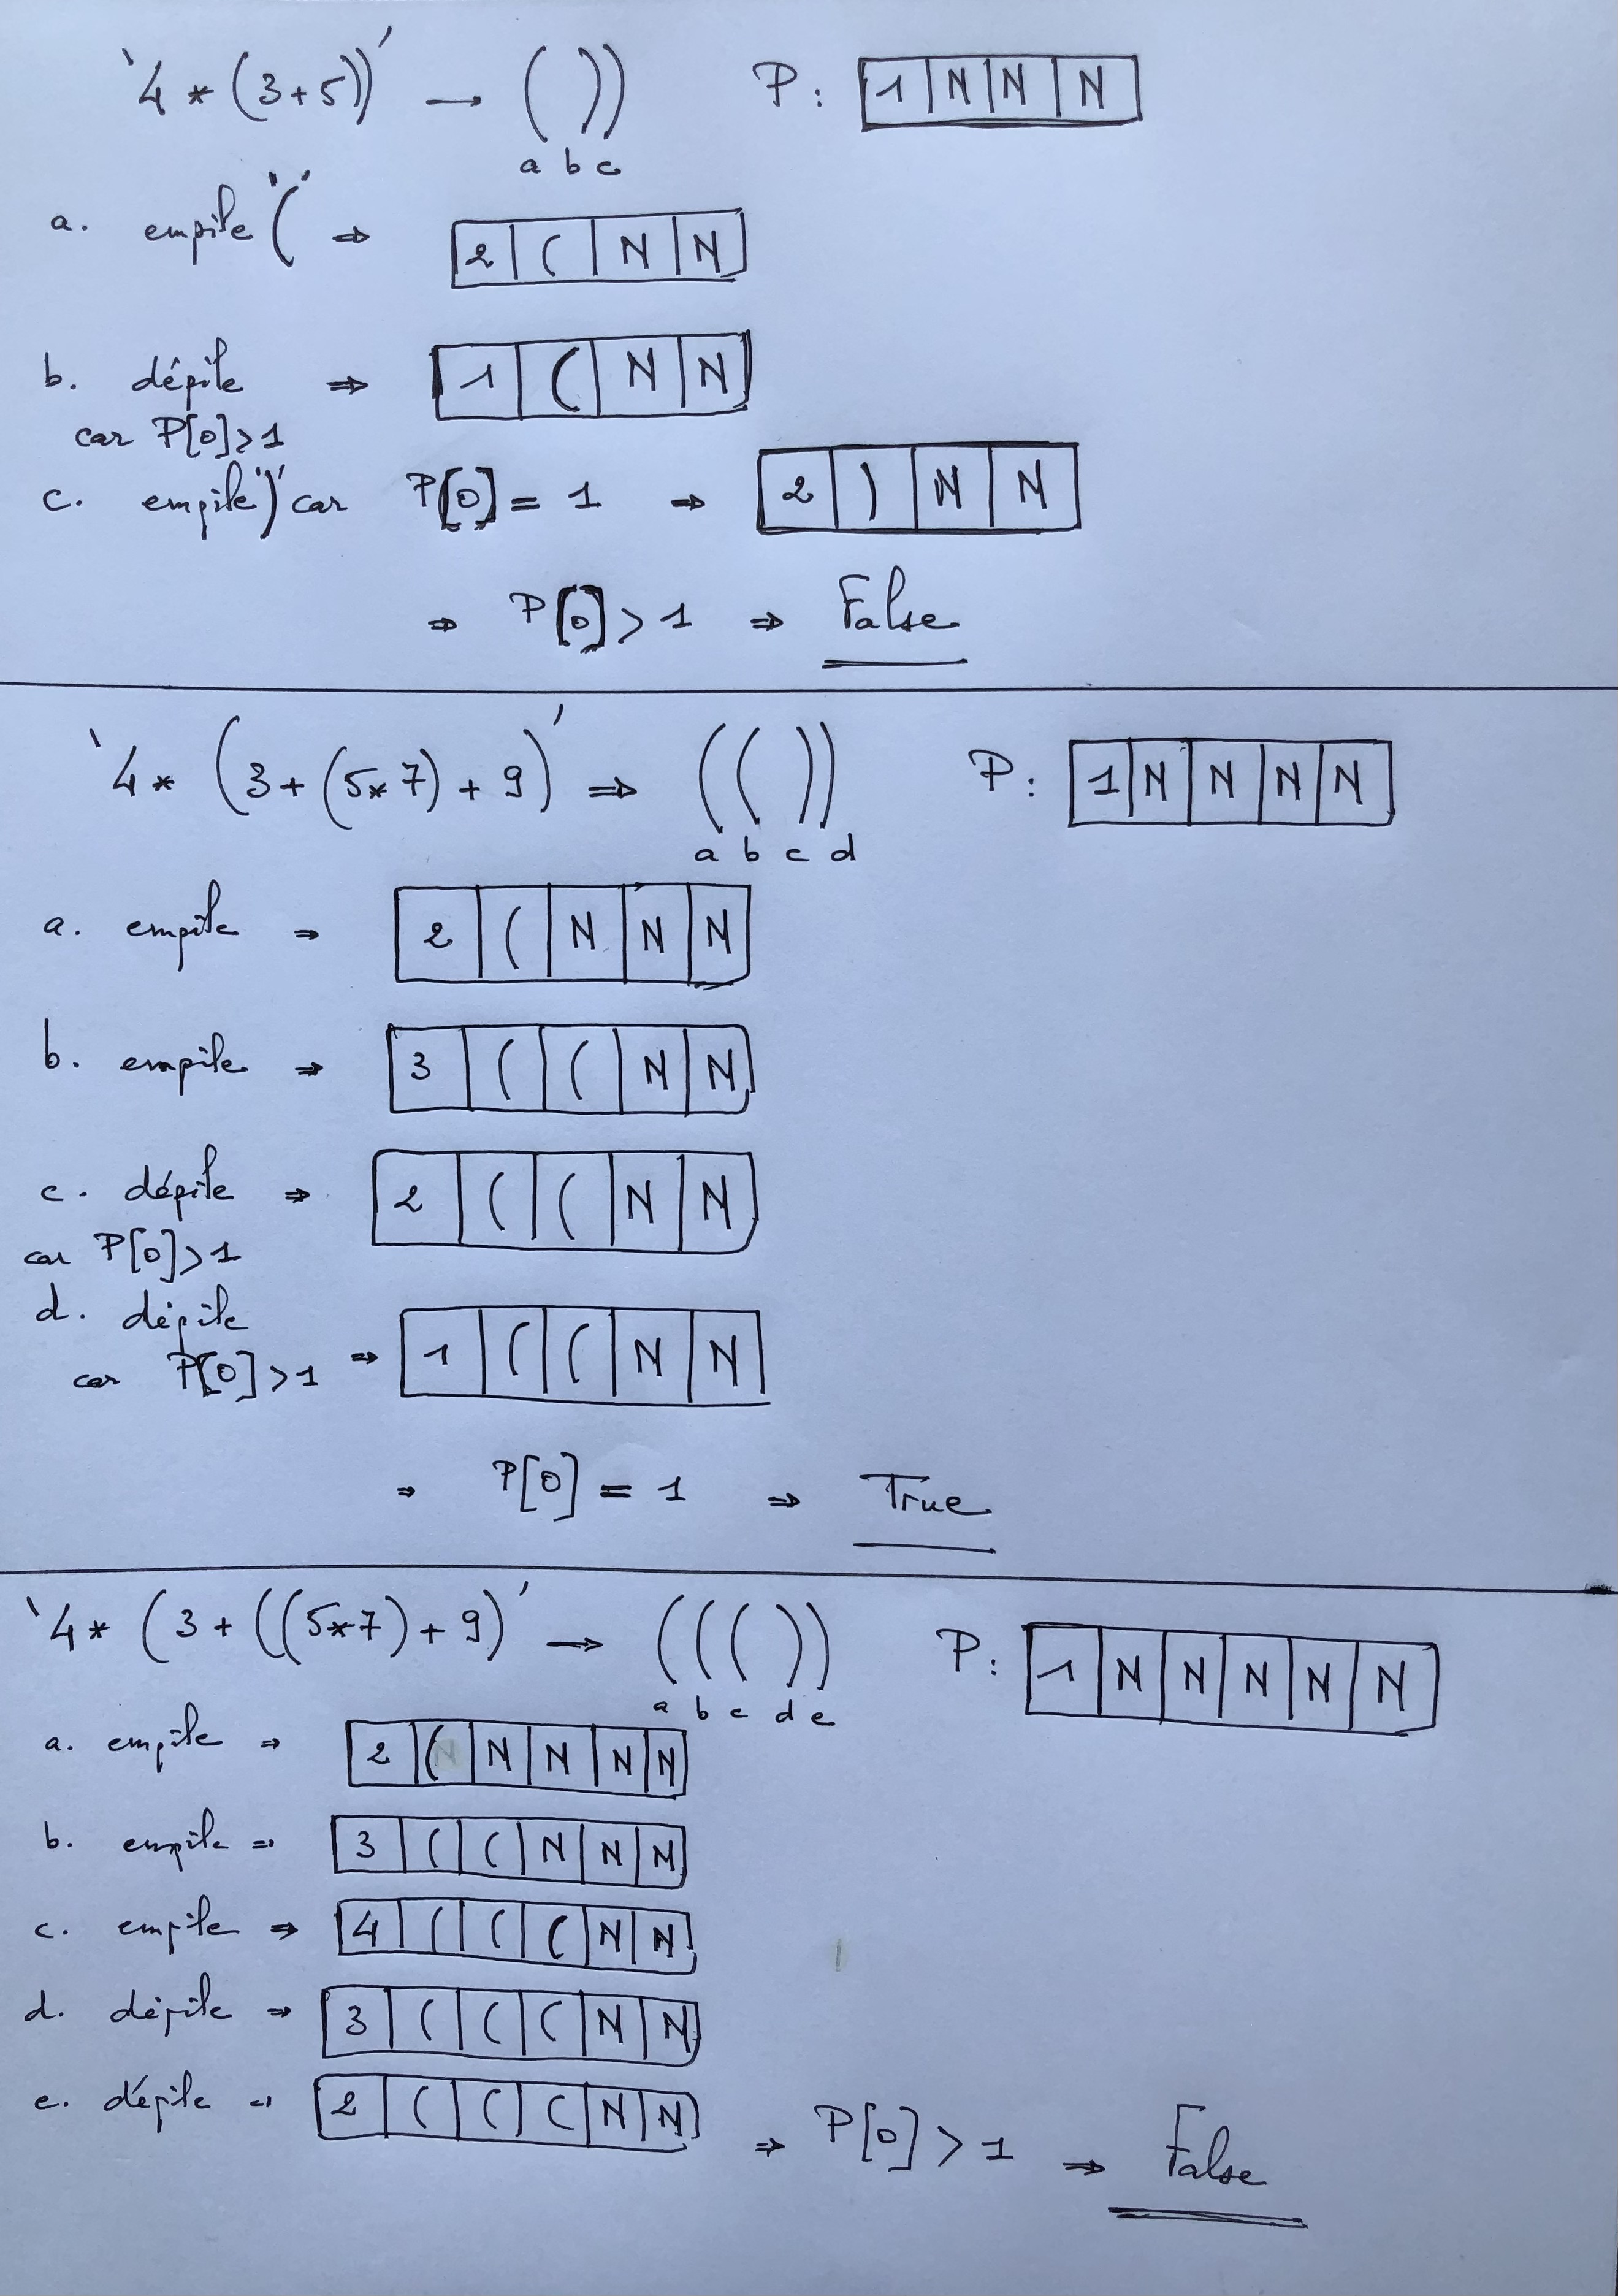 '4 * (3+5))' → ( ) ) P : 1 N N N
a b c
a. empile '(' ⇒ 2 ( N N
b. dépile ⇒ 1 ( N N
car P[0]>1
c. empile ')' car P[0] = 1 ⇒ 2 ) N N
⇒ P[0] > 1 ⇒ False
'4 * (3 + (5*7) + 9)' ⇒ ( ( ) ) P : 1 N N N N
a b c d
a. empile ⇒ 2 ( N N N
b. empile ⇒ 3 ( ( N N
c. dépile ⇒ 2 ( ( N N
car P[0]>1
d. dépile
car P[0]>1 ⇒ 1 ( ( N N
⇒ P[0] = 1 ⇒ True
'4 * (3 + ((5*7) + 9)' → ( ( ( ) ) P : 1 N N N N N
a b c d e
a. empile ⇒ 2 ( N N N N
b. empile ⇒ 3 ( ( N N N
c. empile ⇒ 4 ( ( ( N N
d. dépile ⇒ 3 ( ( ( N N
e. dépile ⇒ 2 ( ( ( N N ⇒ P[0] > 1 ⇒ False